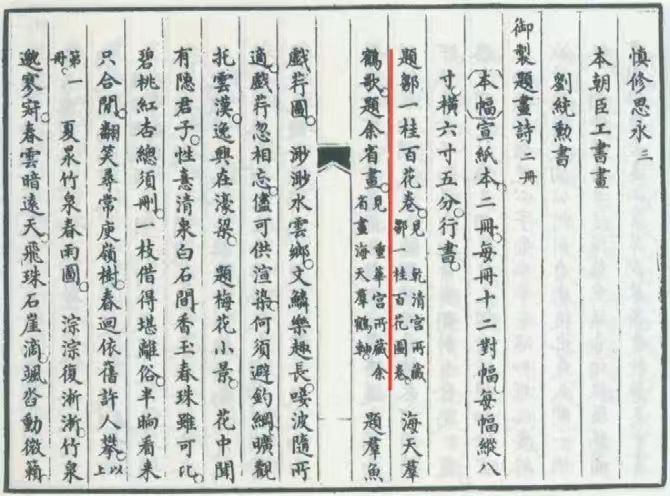 慎修思永 三
本朝臣工書畫
劉統勳書
御製題畫詩 二冊
(本幅)宣紙本二冊。每冊十二對幅。每幅縱八
寸橫六寸五分行書。
題鄒一桂百花卷。見乾清宮所藏鄒一桂百花圖卷。 海天羣
鶴歌。題余省畫。見重華宮所藏余省畫海天羣鶴軸。 題羣魚
戲荇圖。 渺渺水雲鄉。文鱗樂趣長。唼波隨所
適。戲荇忽相忘。儘可供渲染。何須避釣綱。曠觀
托雲漢。逸興在濠梁。 題梅花小景。 花中聞
有隱君子。性意清泉白石間。香玉春珠雖可比。
碧桃紅杏總須刪。一枝借得堪離俗。半晌看來
只合閒。翻笑尋常庾嶺樹。春迴依舊許人攀。以上
第一冊 夏景竹泉春雨圖。 淙淙復淅淅。竹泉
寥 春雲暗遠天。飛珠石崖滴。颯沓動微籟